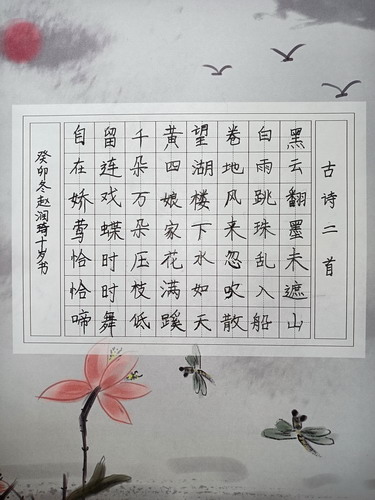 古诗二首
黑云翻墨未遮山
白雨跳珠乱入船
卷地风来忽吹散
望湖楼下水如天
黄四娘家花满蹊
千朵万朵压枝低
留连戏蝶时时舞
自在娇莺恰恰啼
癸卯冬赵润琦十岁书